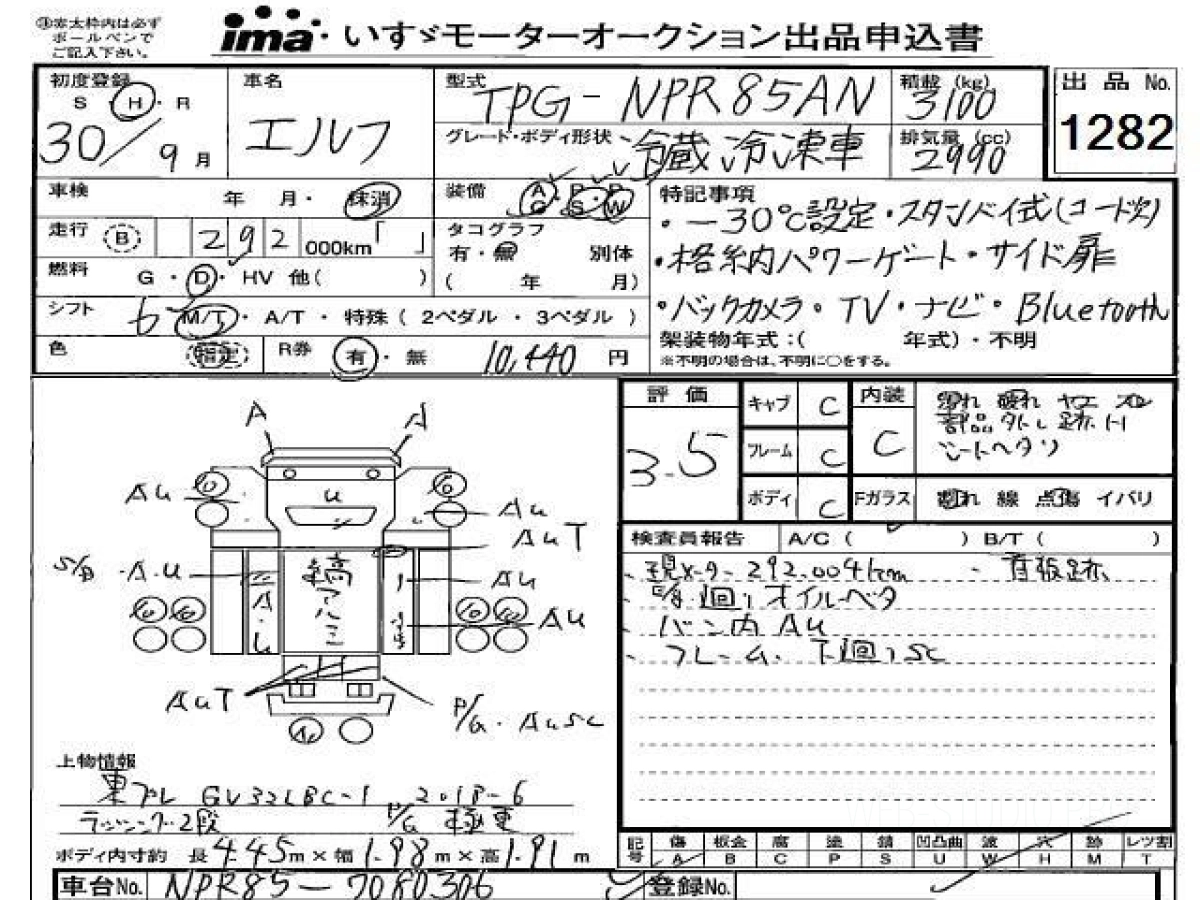 ③赤太枠内は必ず
ボールペンで
ご記入下さい。
ima・いすゞモーターオークション出品申込書
初度登録 車名 型式 TPG-NPR85AN 積載(kg) 3100 出品No.
S・H・R 30/9月 エルフ グレード・ボディ形状 冷蔵冷凍車 排気量(cc) 2990 1282
車検 年 月・抹消 装備 A/G・P/S・P/W 特記事項
・-30℃設定・スタンバイ式(コード欠)
走行 B 292 000km「 」 タコグラフ
有・無 別体
・格納パワーゲート・サイド扉
燃料 G・D・HV 他( ) ( 年 月)
シフト 6 M/T・A/T・特殊(2ペダル・3ペダル)
・バックカメラ・TV・ナビ・Bluetooth
架装物年式:( 年式)・不明
色 指定 R券 有・無 10,440円
※不明の場合は、不明に○をする。
評価 3.5
キャブ C
フレーム C
ボディ C
内装 C
割れ 破れ ヤケ スレ
部品外し跡 H
シートヘタリ
Fガラス 割れ 線 点傷 イバリ
検査員報告 A/C( ) B/T( )
・現メーター292.004km
回りオイルベタ
・バン内 AU
・フレーム、下回りSC
A
A
AU
U
AU
AUT
S/B
A.U
縞アルミ
AU
A・U
AU
AUT
P/G・AUSC
上物情報
東プレ GV32LBC-1 2018-6
ラッシング2段 P/G 極東
ボディ内寸約 長4.45m×幅1.98m×高1.91m
記号 傷 板金 腐 塗 錆 凹凸曲 波 穴 跡 レツ割
A B C P S U W H M T
車台No. NPR85-7080306 登録No.